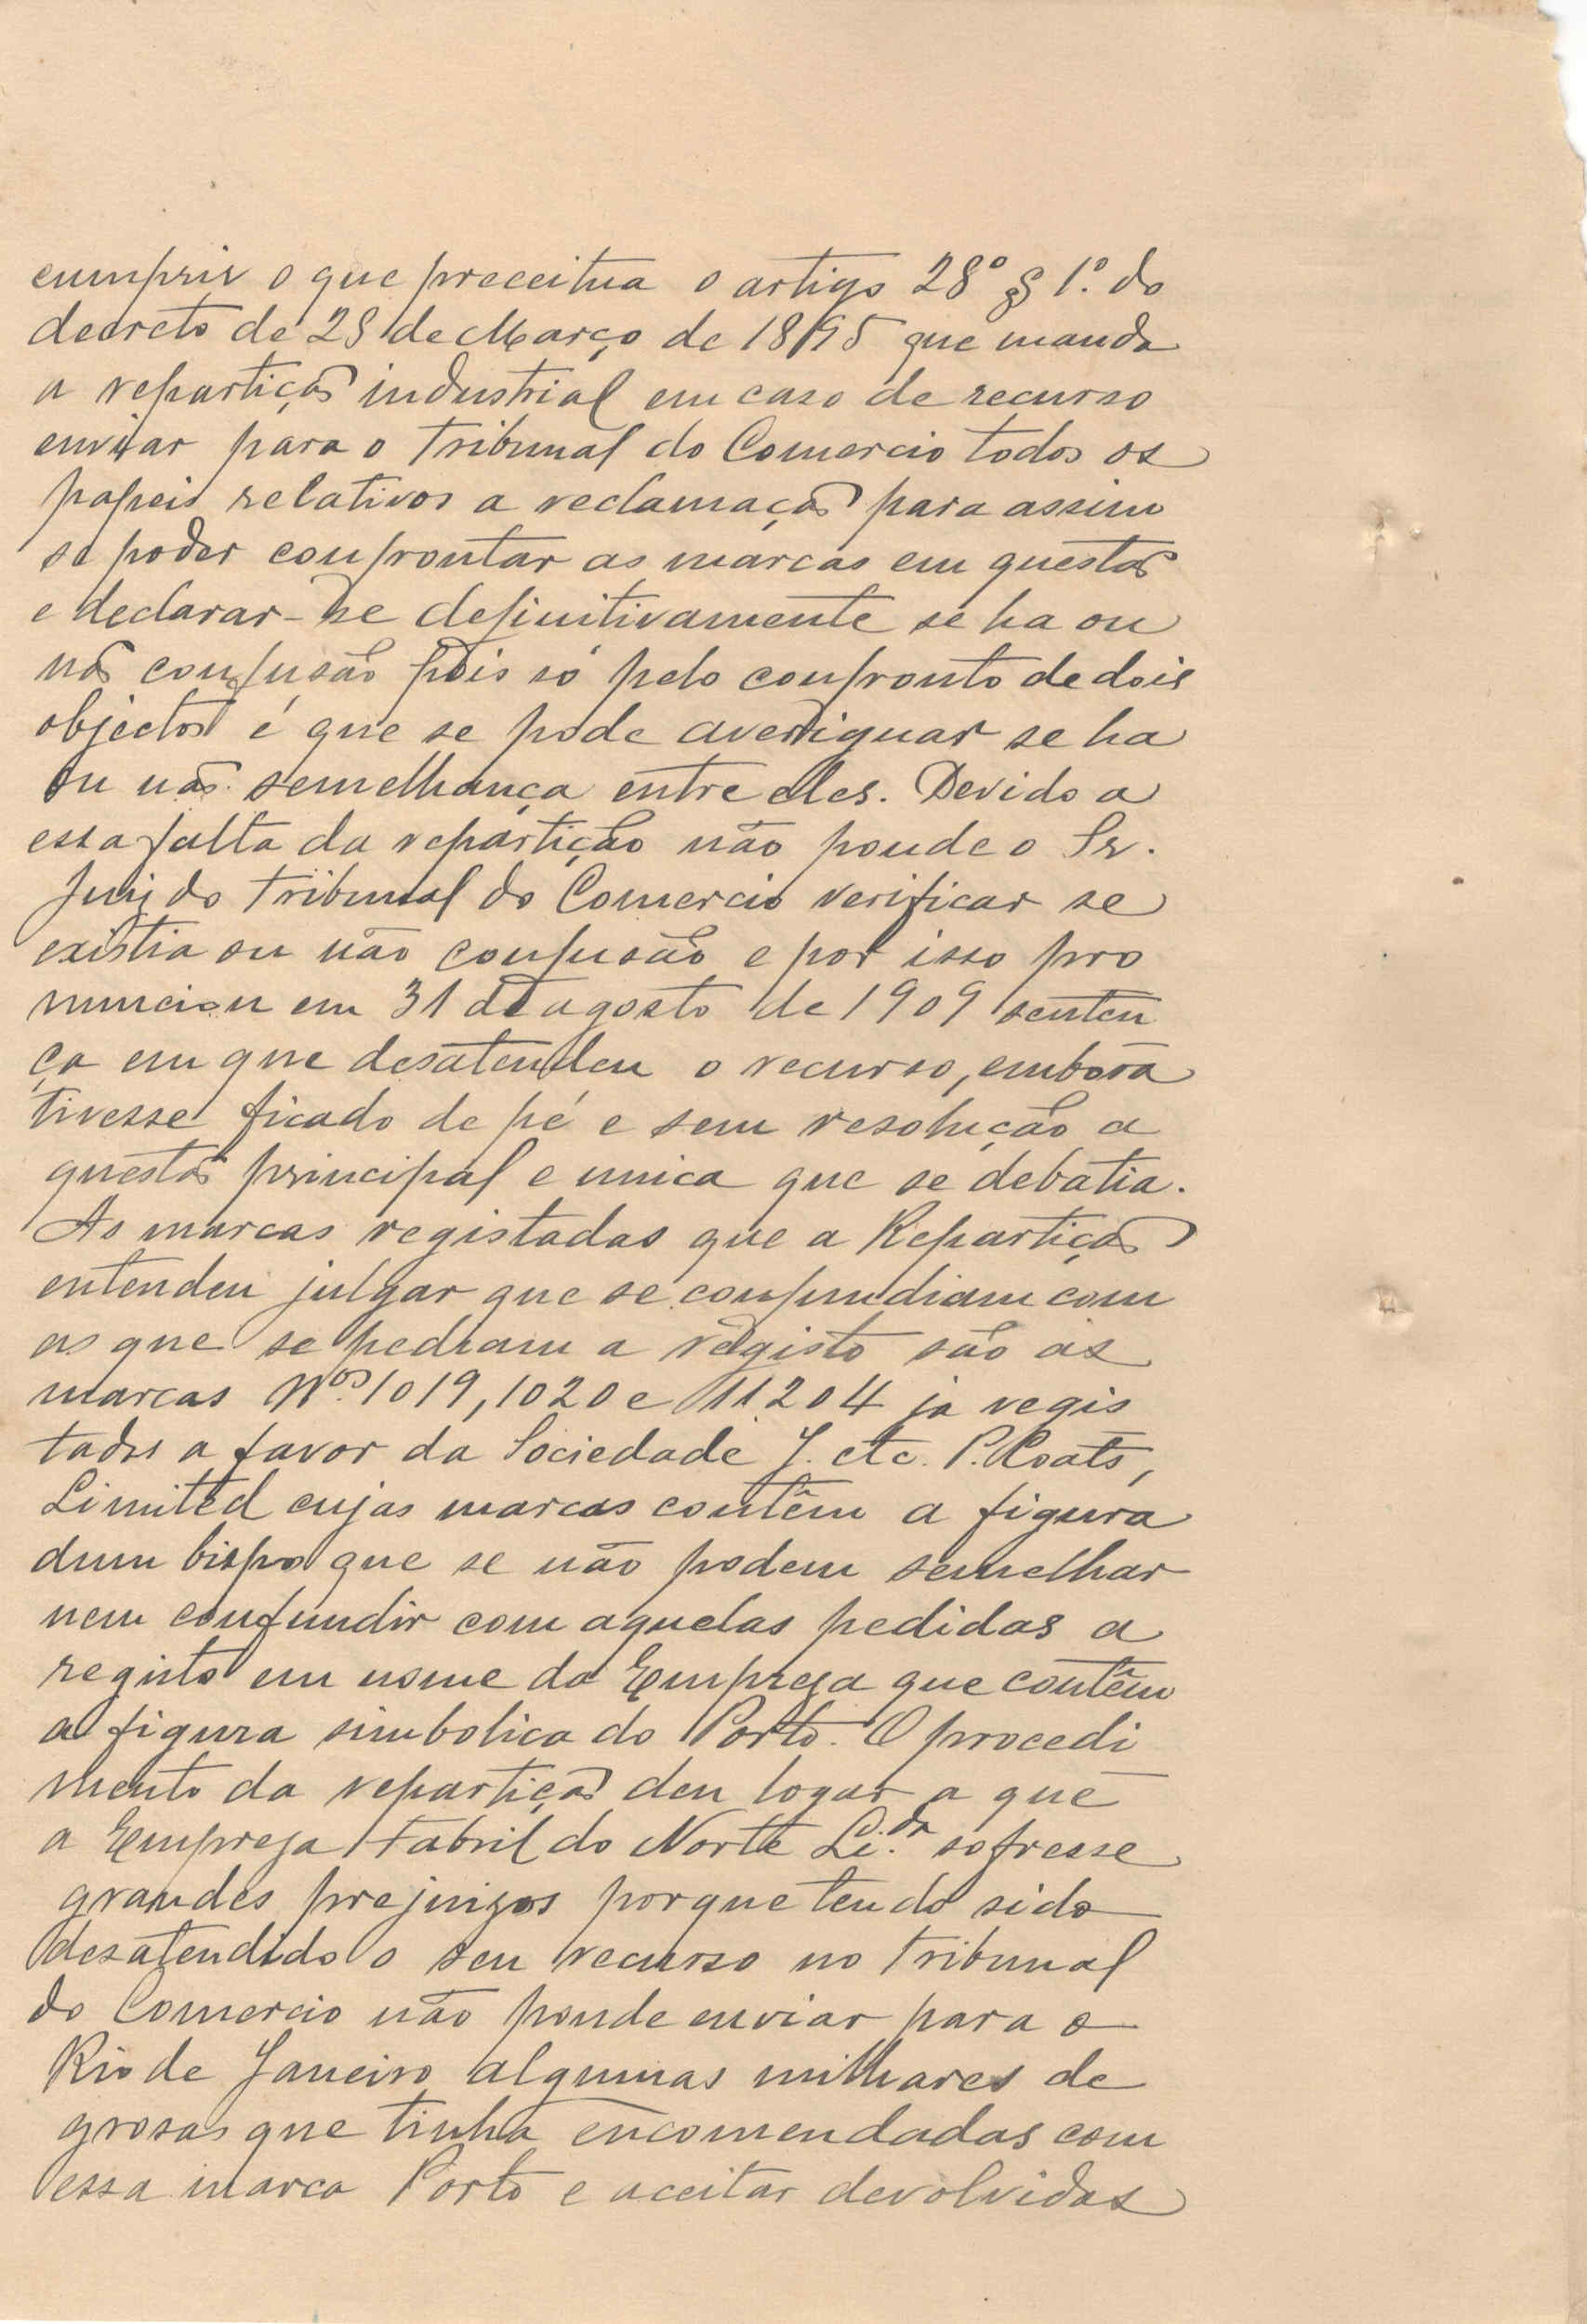 cumprir o que preceitua o artigo 28º § 1.º do
decreto de 28 de Março de 1895 que manda
a repartição industrial em caso de recurso
enviar para o tribunal do Comercio todos os
papeis relativos a reclamação para assim
se poder confrontar as marcas em questão
e declarar-se definitivamente se ha ou
não confusão pois só pelo confronto de dois
objectos é que se pode averiguar se ha
ou não semelhança entre eles. Devido a
essa falta da repartição não poude o Sr.
Juiz do tribunal do Comercio verificar se
existia ou não confusão e por isso pro
nunciou em 31 de agosto de 1909 senten
ça em que desatendeu o recurso, embora
tivesse ficado de pé e sem resolução a
questão principal e unica que se debatia.
As marcas registadas que a Repartição
entendeu julgar que se confundiam com
as que se pediam a registo são as
marcas Nos. 1019, 1020 e 11204 ja regis
tados a favor da Sociedade J. etc. P. Coats,
Limited cujas marcas contêm a figura
dum bispo que se não podem semelhar
nem confundir com aquelas pedidas a
registo em nome da Empreza que contêm
a figura simbolica do Porto. O procedi
mento da repartição deu logar a que
a Empreza Fabril do Norte Li.da sofresse
grandes prejuizos porque tendo sido
desatendido o seu recurso no tribunal
do Comercio não poude enviar para o
Rio de Janeiro algumas milhares de
grosas que tinha encomendadas com
essa marca Porto e aceitar devolvidas